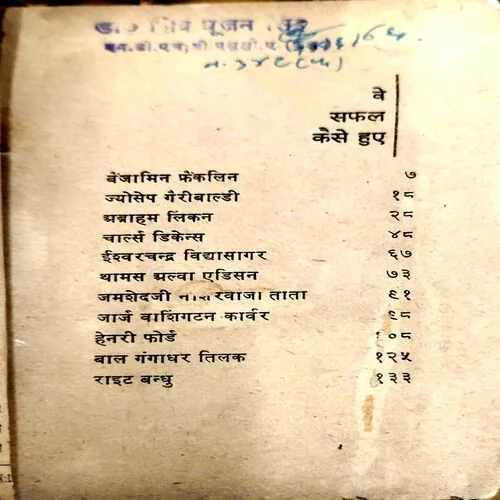 डा० शिव पूजन
एम. डी. एच.
वे
सफल
कैसे हुए
बेंजामिन फ्रैंकलिन ७
ज्योसेप गैरीबाल्डी १८
अब्राहम लिंकन २८
चार्ल्स डिकेन्स ४८
ईश्वरचन्द्र विद्यासागर ६७
थामस अल्वा एडिसन ७३
जमशेदजी नाशिरवाजी ताता ९१
जार्ज वाशिंगटन कार्वर ९८
हेनरी फोर्ड १०८
बाल गंगाधर तिलक १२५
राइट बन्धु १३३